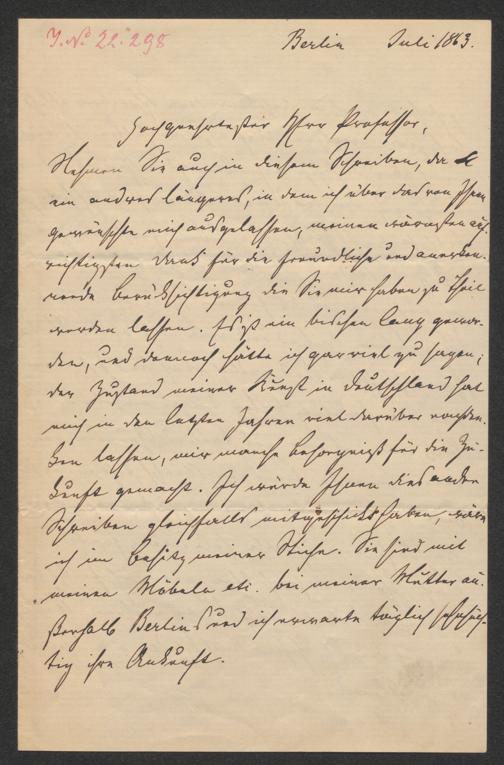 J. No 22.298
Berlin Juli 1863.
Hochgeehrtester Herr Professor,
Nehmen Sie auch in diesem Schreiben, da
ein andres längeres, in dem ich über das von Ihnen
gewünschte mich ausgelassen, meinen wärmsten auf-
richtigsten Dank für die freundliche und anerken-
nende Berücksichtigung die Sie mir haben zu Theil
werden lassen. Es ist ein bischen lang gewor-
den, und dennoch hätte ich gar viel zu sagen;
der Zustand meiner Kunst in Deutschland hat
mich in den letzten Jahren viel darüber nachden-
ken lassen, mir manche Besorgniß für die Zu-
kunft gemacht. Ich würde Ihnen dies andre
Schreiben gleichfalls mitgeschickt haben, wäre
ich im Besitz meiner Stiche. Sie sind mit
meinen Möbeln etc. bei meiner Mutter au-
ßerhalb Berlins und ich erwarte täglich sehnsüch-
tig ihre Ankunft.